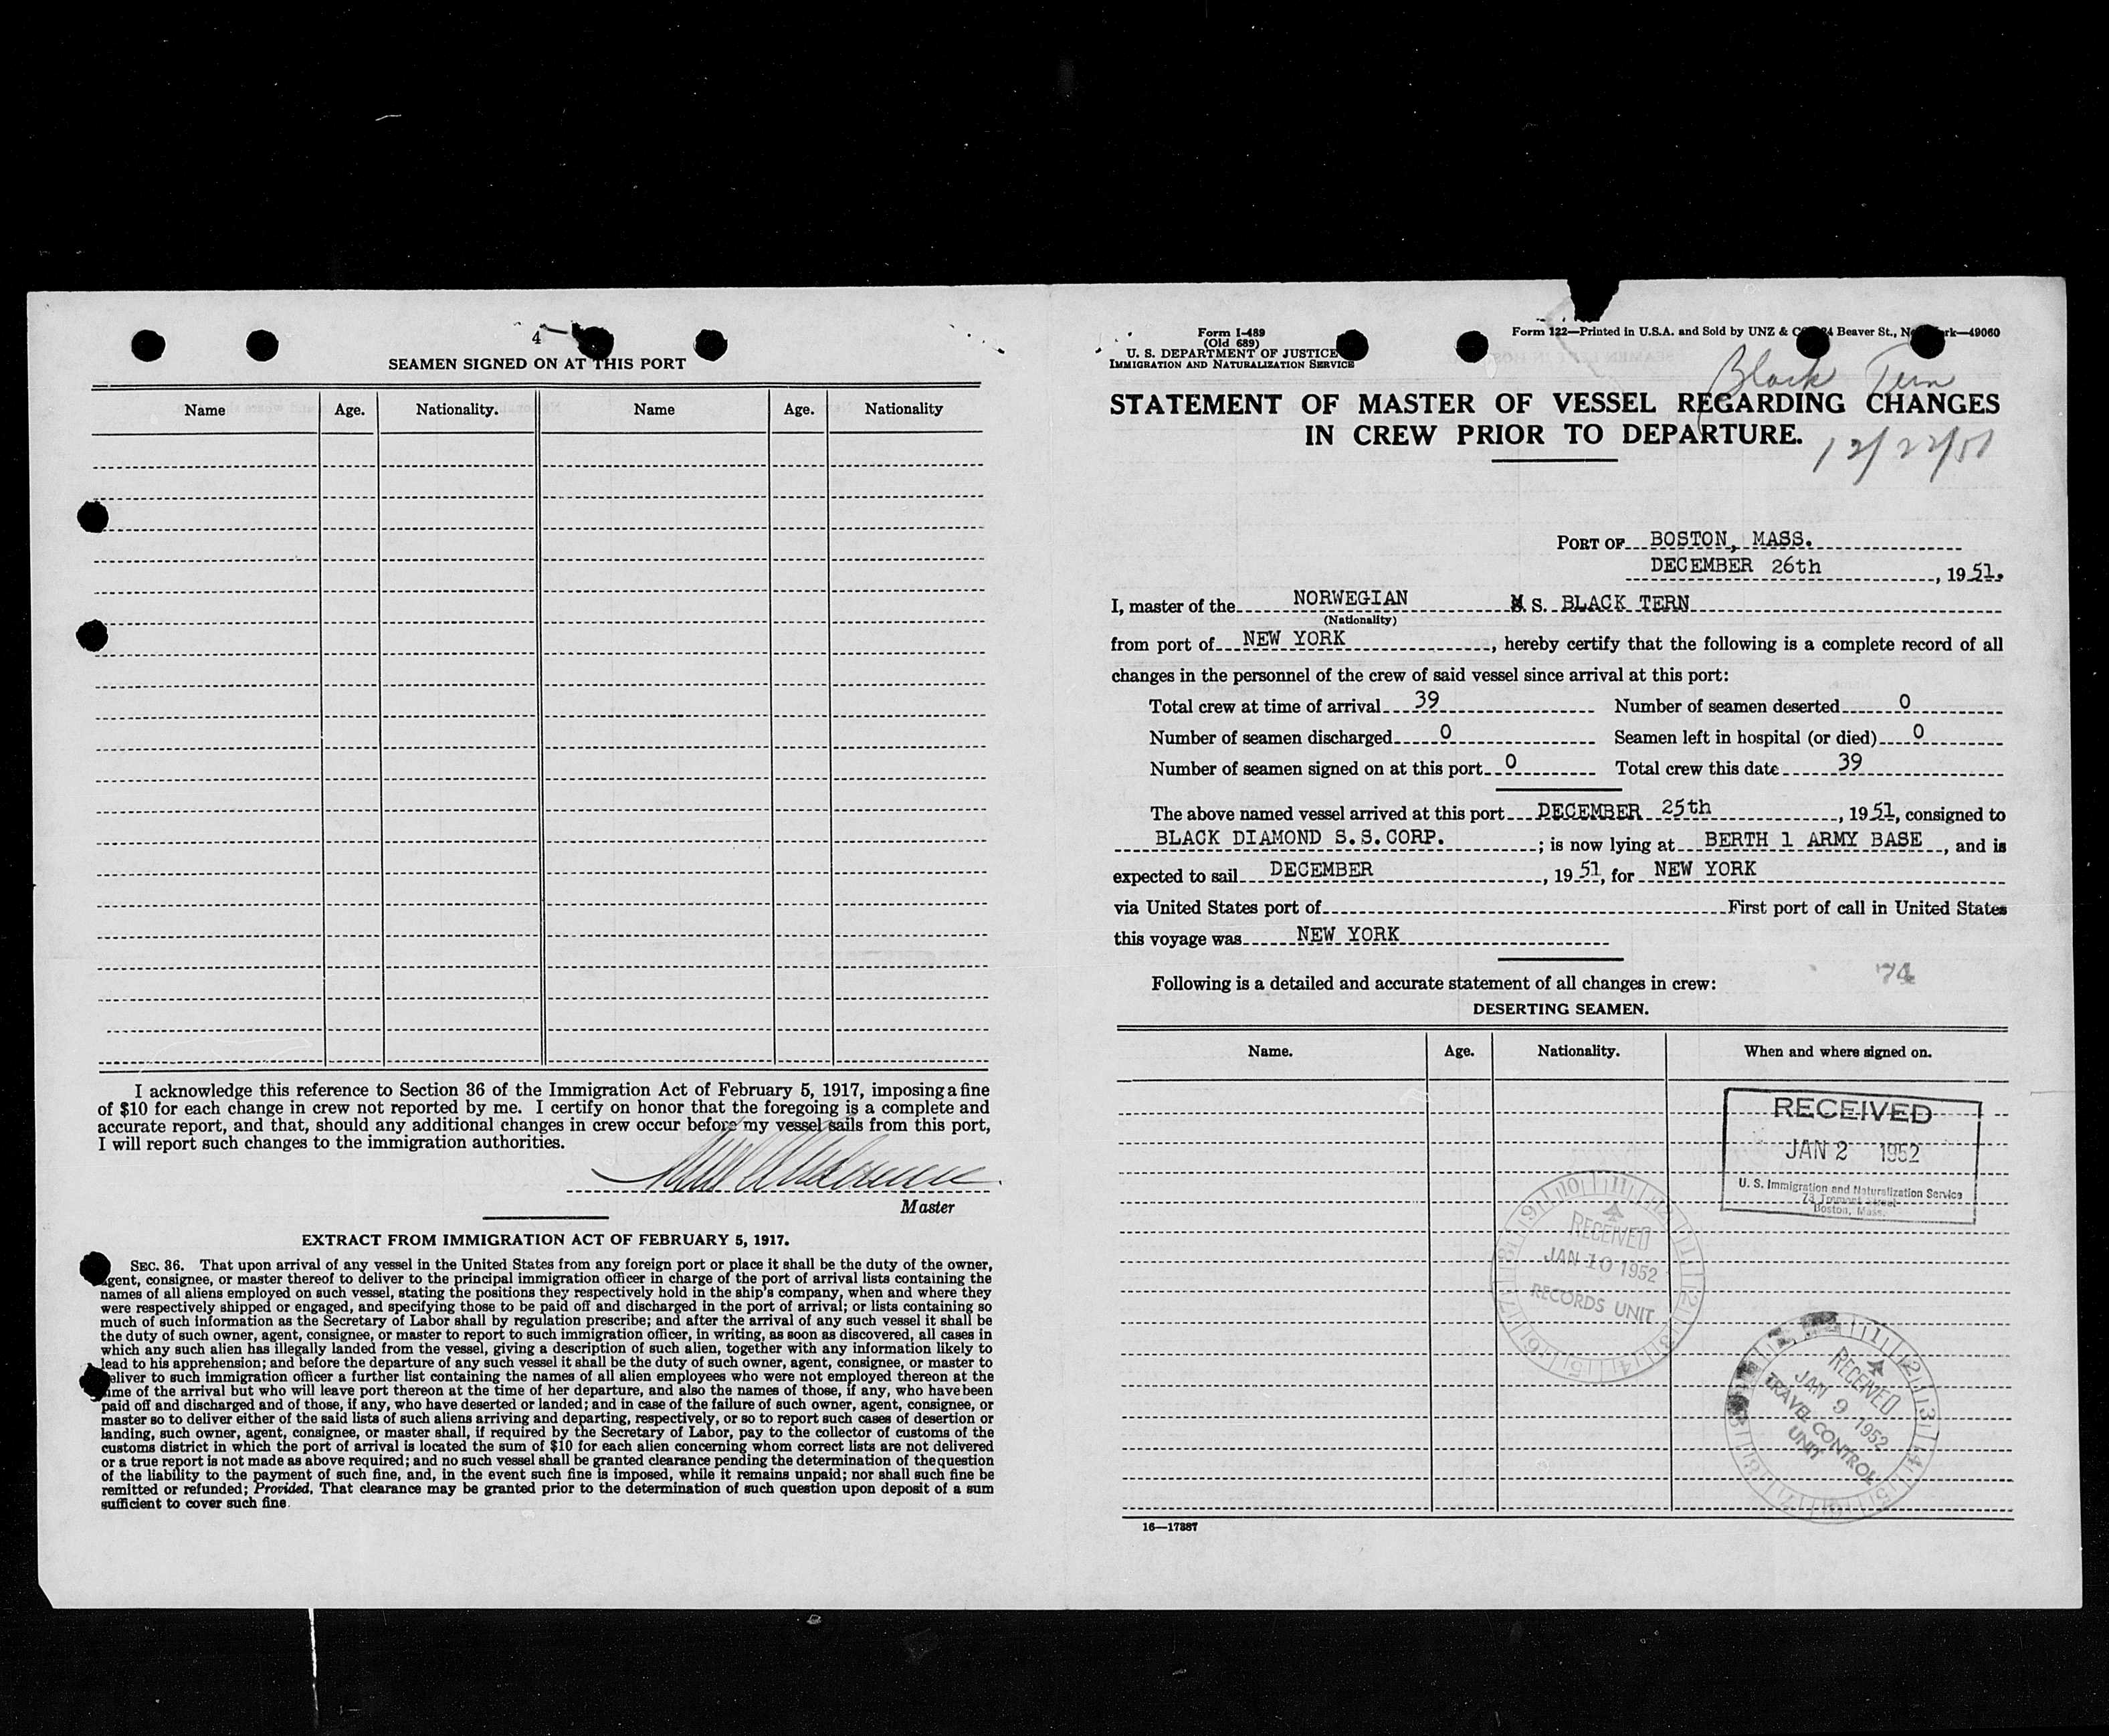 4
SEAMEN SIGNED ON AT THIS PORT
Name Age. Nationality. Name Age. Nationality
I acknowledge this reference to Section 36 of the Immigration Act of February 5, 1917, imposing a fine
of $10 for each change in crew not reported by me. I certify on honor that the foregoing is a complete and
accurate report, and that, should any additional changes in crew occur before my vessel sails from this port,
I will report such changes to the immigration authorities.
Master
EXTRACT FROM IMMIGRATION ACT OF FEBRUARY 5, 1917.
SEC. 36. That upon arrival of any vessel in the United States from any foreign port or place it shall be the duty of the owner,
agent, consignee, or master thereof to deliver to the principal immigration officer in charge of the port of arrival lists containing the
names of all aliens employed on such vessel, stating the positions they respectively hold in the ship's company, when and where they
were respectively shipped or engaged, and specifying those to be paid off and discharged in the port of arrival; or lists containing so
much of such information as the Secretary of Labor shall by regulation prescribe; and after the arrival of any such vessel it shall be
the duty of such owner, agent, consignee, or master to report to such immigration officer, in writing, as soon as discovered, all cases in
which any such alien has illegally landed from the vessel, giving a description of such alien, together with any information likely to
lead to his apprehension; and before the departure of any such vessel it shall be the duty of such owner, agent, consignee, or master to
deliver to such immigration officer a further list containing the names of all alien employees who were not employed thereon at the
time of the arrival but who will leave port thereon at the time of her departure, and also the names of those, if any, who have been
paid off and discharged and of those, if any, who have deserted or landed; and in case of the failure of such owner, agent, consignee, or
master so to deliver either of the said lists of such aliens arriving and departing, respectively, or so to report such cases of desertion or
landing, such owner, agent, consignee, or master shall, if required by the Secretary of Labor, pay to the collector of customs of the
customs district in which the port of arrival is located the sum of $10 for each alien concerning whom correct lists are not delivered
or a true report is not made as above required; and no such vessel shall be granted clearance pending the determination of the question
of the liability to the payment of such fine, and, in the event such fine is imposed, while it remains unpaid; nor shall such fine be
remitted or refunded; Provided, That clearance may be granted prior to the determination of such question upon deposit of a sum
sufficient to cover such fine.
Form I-489
(Old 689)
U. S. DEPARTMENT OF JUSTICE
IMMIGRATION AND NATURALIZATION SERVICE
Form 122—Printed in U.S.A. and Sold by UNZ & Beaver St., 49060
Black Tern
STATEMENT OF MASTER OF VESSEL REGARDING CHANGES
IN CREW PRIOR TO DEPARTURE.
12/22/51
PORT OF BOSTON, MASS.
DECEMBER 26th, 1951.
I, master of the NORWEGIAN M S. BLACK TERN
(Nationality)
from port of NEW YORK, hereby certify that the following is a complete record of all
changes in the personnel of the crew of said vessel since arrival at this port:
Total crew at time of arrival 39 Number of seamen deserted 0
Number of seamen discharged 0 Seamen left in hospital (or died) 0
Number of seamen signed on at this port 0 Total crew this date 39
The above named vessel arrived at this port DECEMBER 25th, 1951, consigned to
BLACK DIAMOND S.S.CORP.; is now lying at BERTH 1 ARMY BASE, and is
expected to sail DECEMBER, 1951, for NEW YORK
via United States port of First port of call in United States
this voyage was NEW YORK
74
Following is a detailed and accurate statement of all changes in crew:
DESERTING SEAMEN.
Name. Age. Nationality. When and where signed on.
RECEIVED
JAN 2 1952
U. S. Immigration and Naturalization Service
73 Tremont Street
Boston, Mass.
RECEIVED
JAN 10 1952
RECORDS UNIT
RECEIVED
JAN 9 1952
TRAVEL CONTROL
UNIT
16—17887